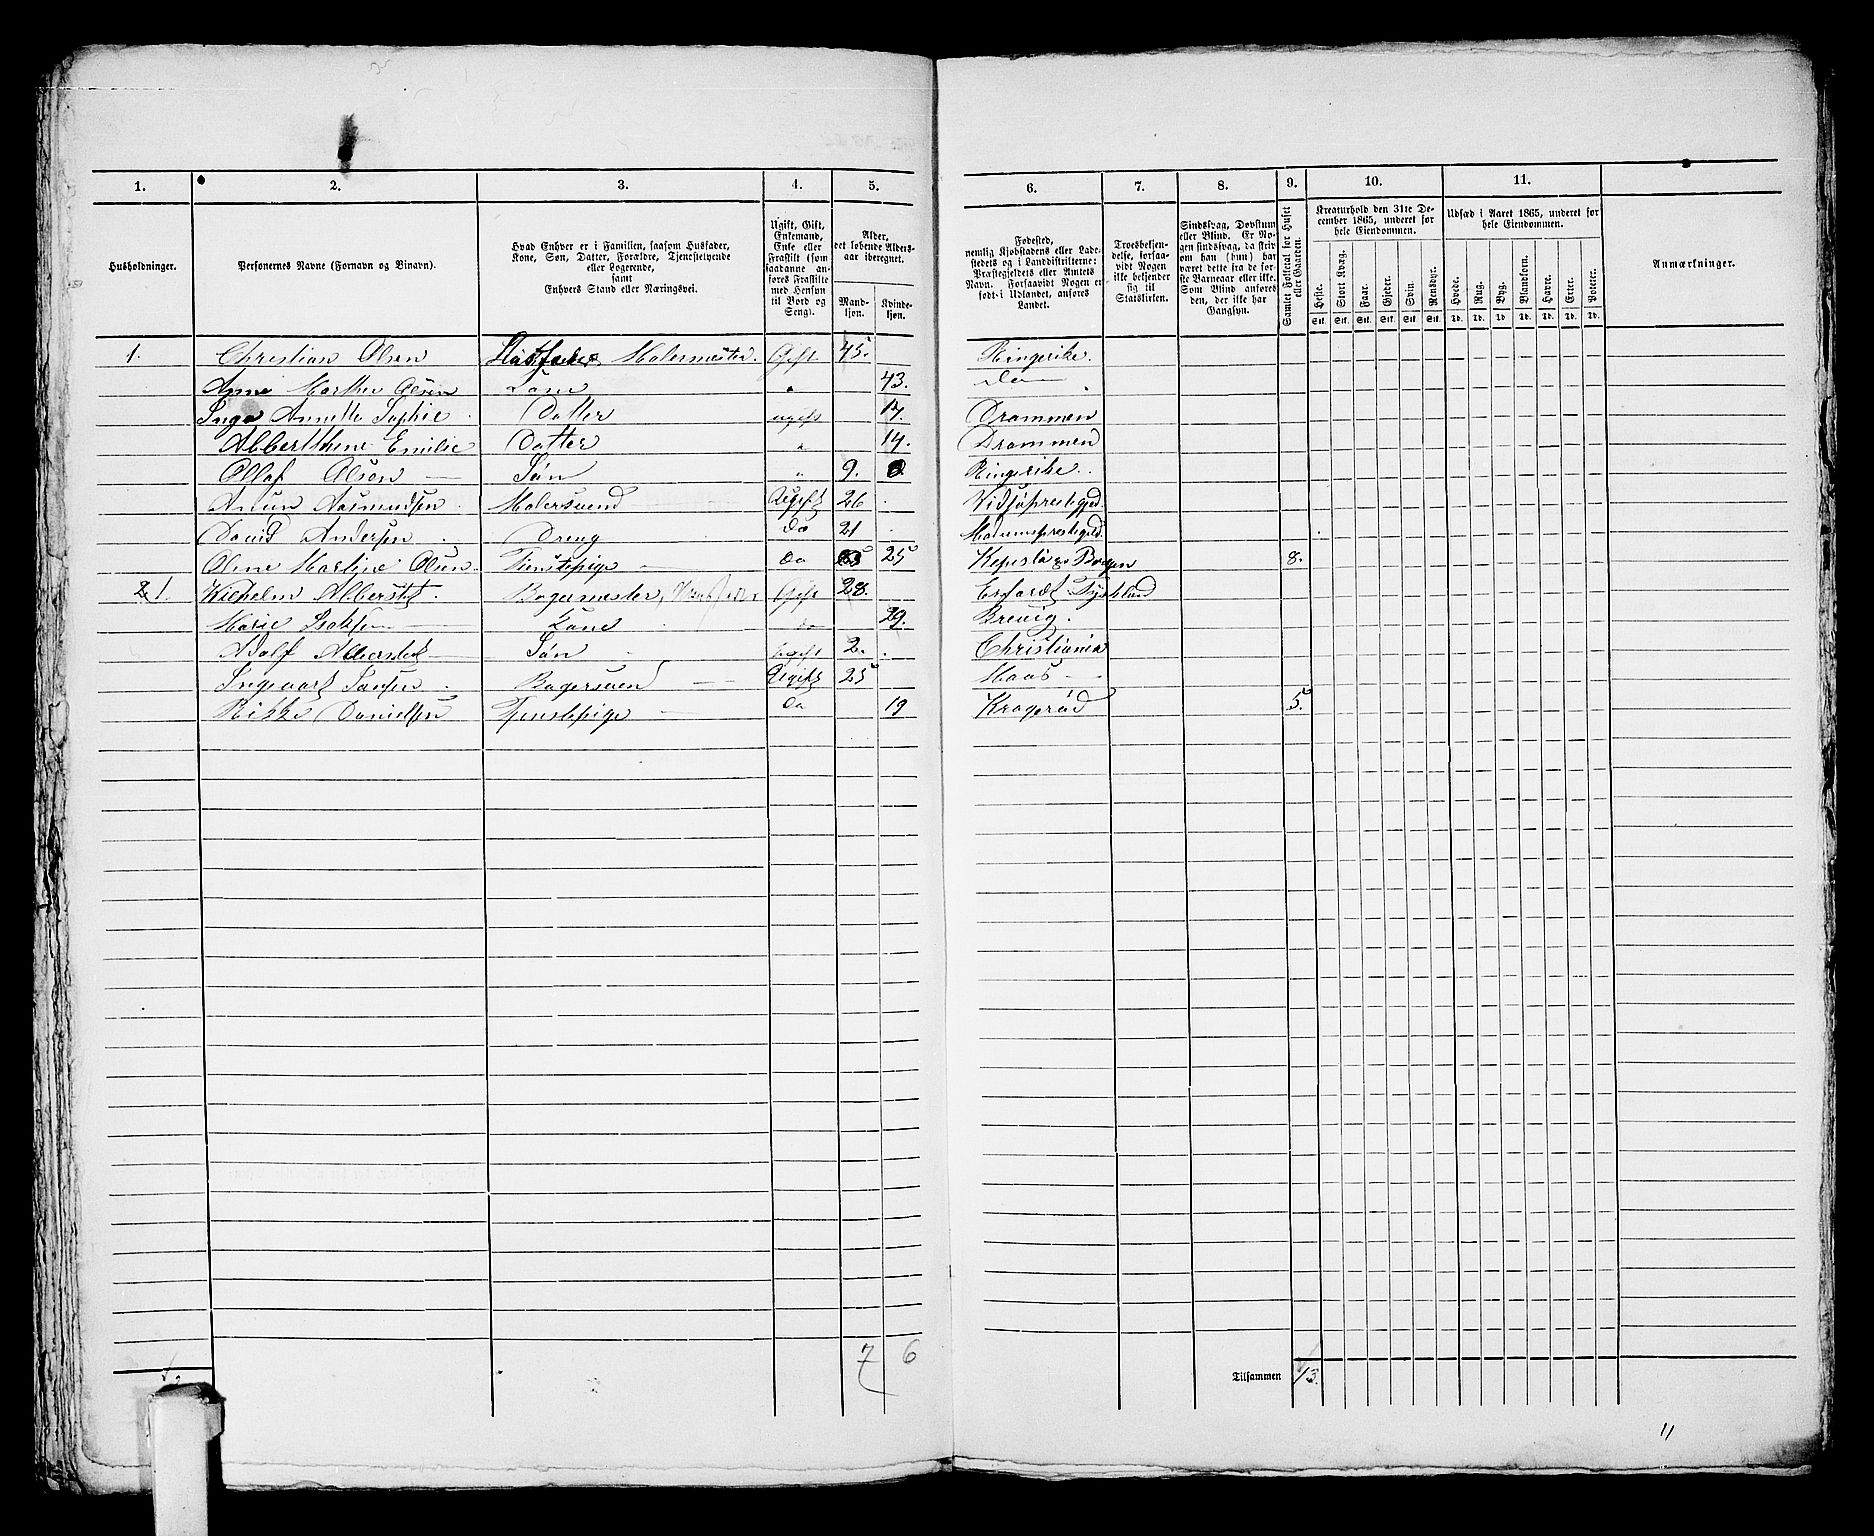 1. 2. 3. 4. 5. 6. 7. 8. 9. 10. 11.
Husholdninger.
Personernes Navne (Fornavn og Binavn).
Hvad Enhver er i Familien, saasom Husfader,
Kone, Søn, Datter, Forældre, Tjenestetyende
eller Logerende,
samt
Enhvers Stand eller Næringsvei.
Ugift, Gift,
Enkemand,
Enke eller
Fraskilt (som
saadanne an-
føres Fraskilte
med Hensyn
til Bord og
Seng).
Alder,
det løbende Alders-
aar iberegnet.
Mand-
kjøn.
Kvinde-
kjøn.
Fødested,
nemlig Kjøbstadens eller Lade-
stedets og i Landdistrikterne:
Præstegjeldets eller Amtets
Navn. Forsaavidt Nogen er
født i Udlandet, anføres
Landet.
Troesbekjen-
delse, forsaa-
vidt Nogen
ikke bekjender
sig til
Statskirken.
Sindssvag, Døvstum
eller Blind. Er No-
gen sindssvag, da skriv
om han (hun) har
været dette fra de før-
ste Barneaar eller ikke.
Som Blind anføres
den, der ikke har
Gangsyn.
Samlet Folketal for Huset
eller Gaarden.
Kreaturhold den 31te De-
cember 1865, underet for
hele Eiendommen.
Heste. Stort Kvæg. Faar. Gjeder. Svin. Rensdyr.
Stk. Stk. Stk. Stk. Stk. Stk.
Udsæd i Aaret 1865, underet for
hele Eiendommen.
Hvede. Rug. Byg. Blandkorn. Havre. Erter. Poteter.
Td. Td. Td. Td. Td. Td. Td.
Anmærkninger.
1. Christian Olsen Husfader Malermester. Gift 45. Ringerike.
Anne Marthe Olsen Kone " 43. do
Inga Annette Sophie Datter ugift 17. Drammen
Alberthine Emilie Datter " 14. Drammen
Ollaf Olsen Søn " 9. Ringerike.
Aasmundsen Malersvend Ugift 26
David Andersen Dreng do 21
Oline Martine Olsen Tienstepige do 25 8.
2 1. Vilhelm Alberstat. Bagermester, Husfader Gift 28. Tyskland
Marie Isaksen Kone do 29. Brevig.
Adolf Alberstat Søn Ugift 2. Christiania
Ingevart Jansen Bagersven Ugift 25
Rikke Danielsen Tjenstepige do 19 Kragerød 5.
7 6
Tilsammen 13.
11